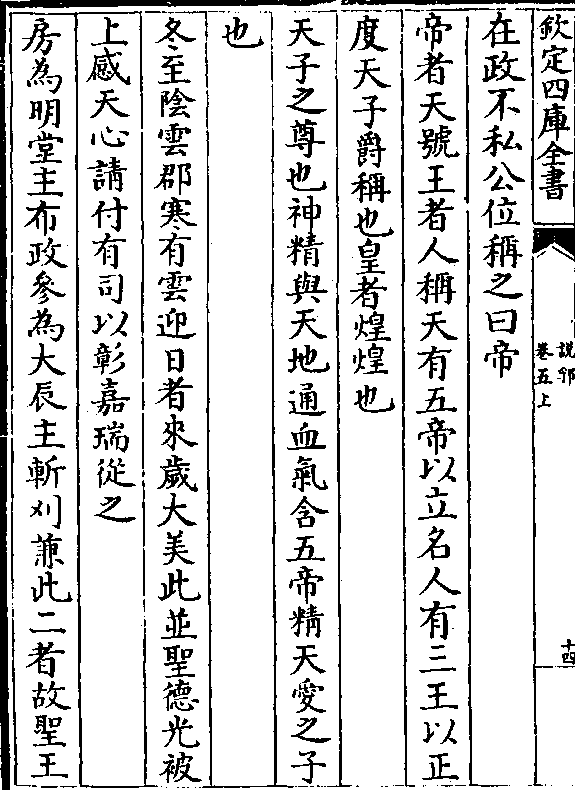 欽定四庫全書
說郛
卷五上
十四
在政不私公位稱之曰帝
帝者天號王者人稱天有五帝以立名人有三王以正
度天子爵稱也皇者煌煌也
天子之尊也神精與天地通血氣含五帝精天愛之子
也
冬至陰雲郡寒有雲迎日者來歲大美此並聖德光被
上感天心請付有司以彰嘉瑞從之
房為明堂主布政參為大辰主斬刈兼此二者故聖王